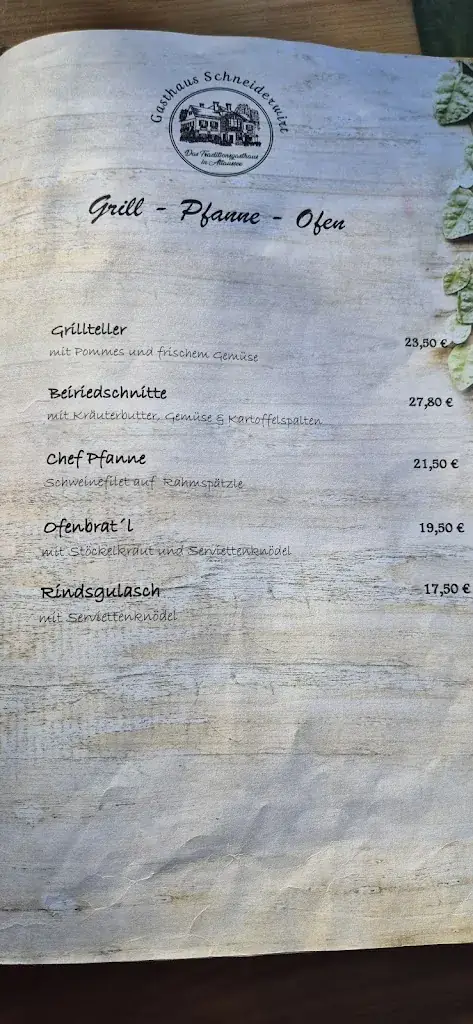 Gasthaus Schneiderwirt
Das Traditionsgasthaus
in Altaussee
Grill - Pfanne - Ofen
Grillteller
23,50 €
mit Pommes und frischem Gemüse
Beiriedschnitte
27,80 €
mit Kräuterbutter, Gemüse & Kartoffelspalten
Chef Pfanne
21,50 €
Schweinefilet auf Rahmspätzle
Ofenbrat´l
19,50 €
mit Stöckelkraut und Serviettenknödel
Rindsgulasch
17,50 €
mit Serviettenknödel